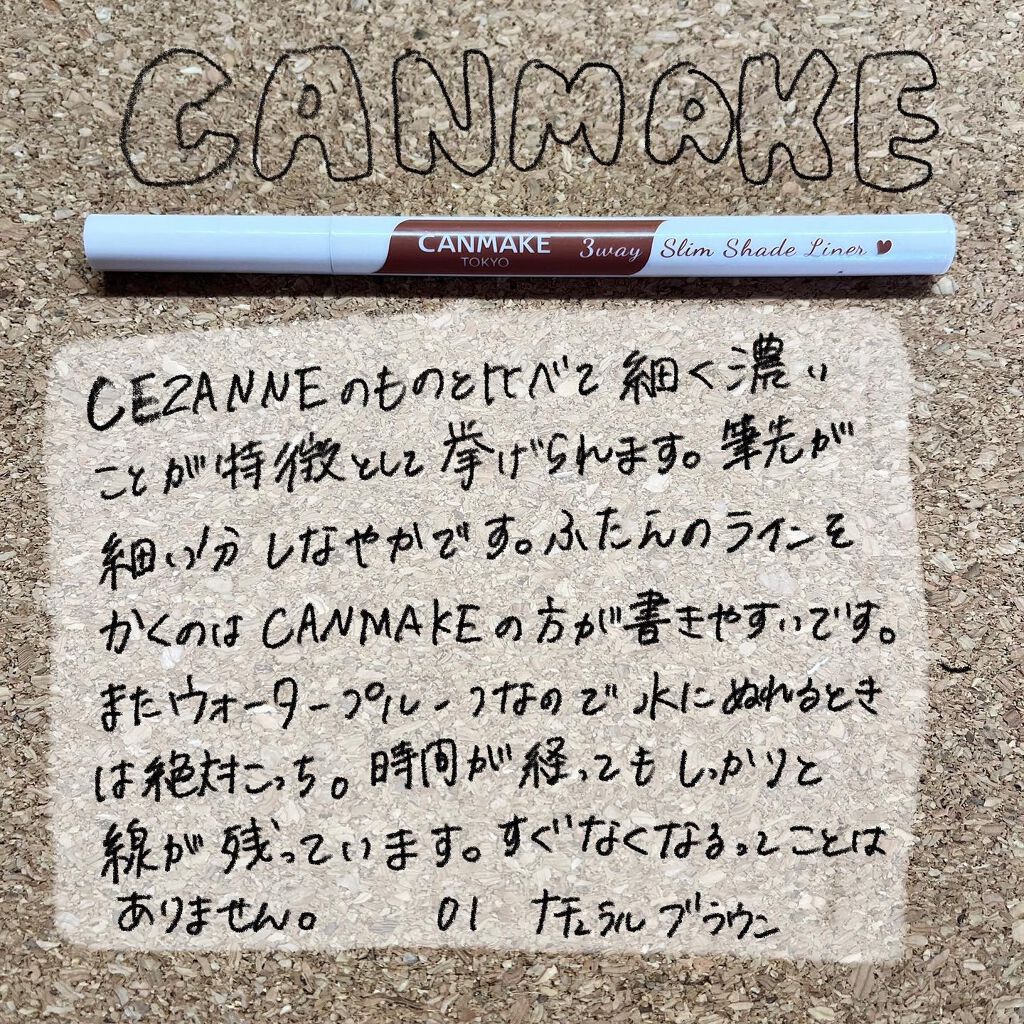 CANMAKE
CANMAKE
TOKYO
3way Slim Shade Liner
CEZANNEのものと比べて細く濃い
ことが特徴として挙げられます。筆先が
細い分しなやかです。ふたえのラインを
かくのはCANMAKEの方が書きやすいです。
またウォータープルーフなので水にぬれるとき
は絶対こっち。時間が経ってもしっかりと
線が残っています。すぐなくなるってことは
ありません。 01 ナチュラルブラウン